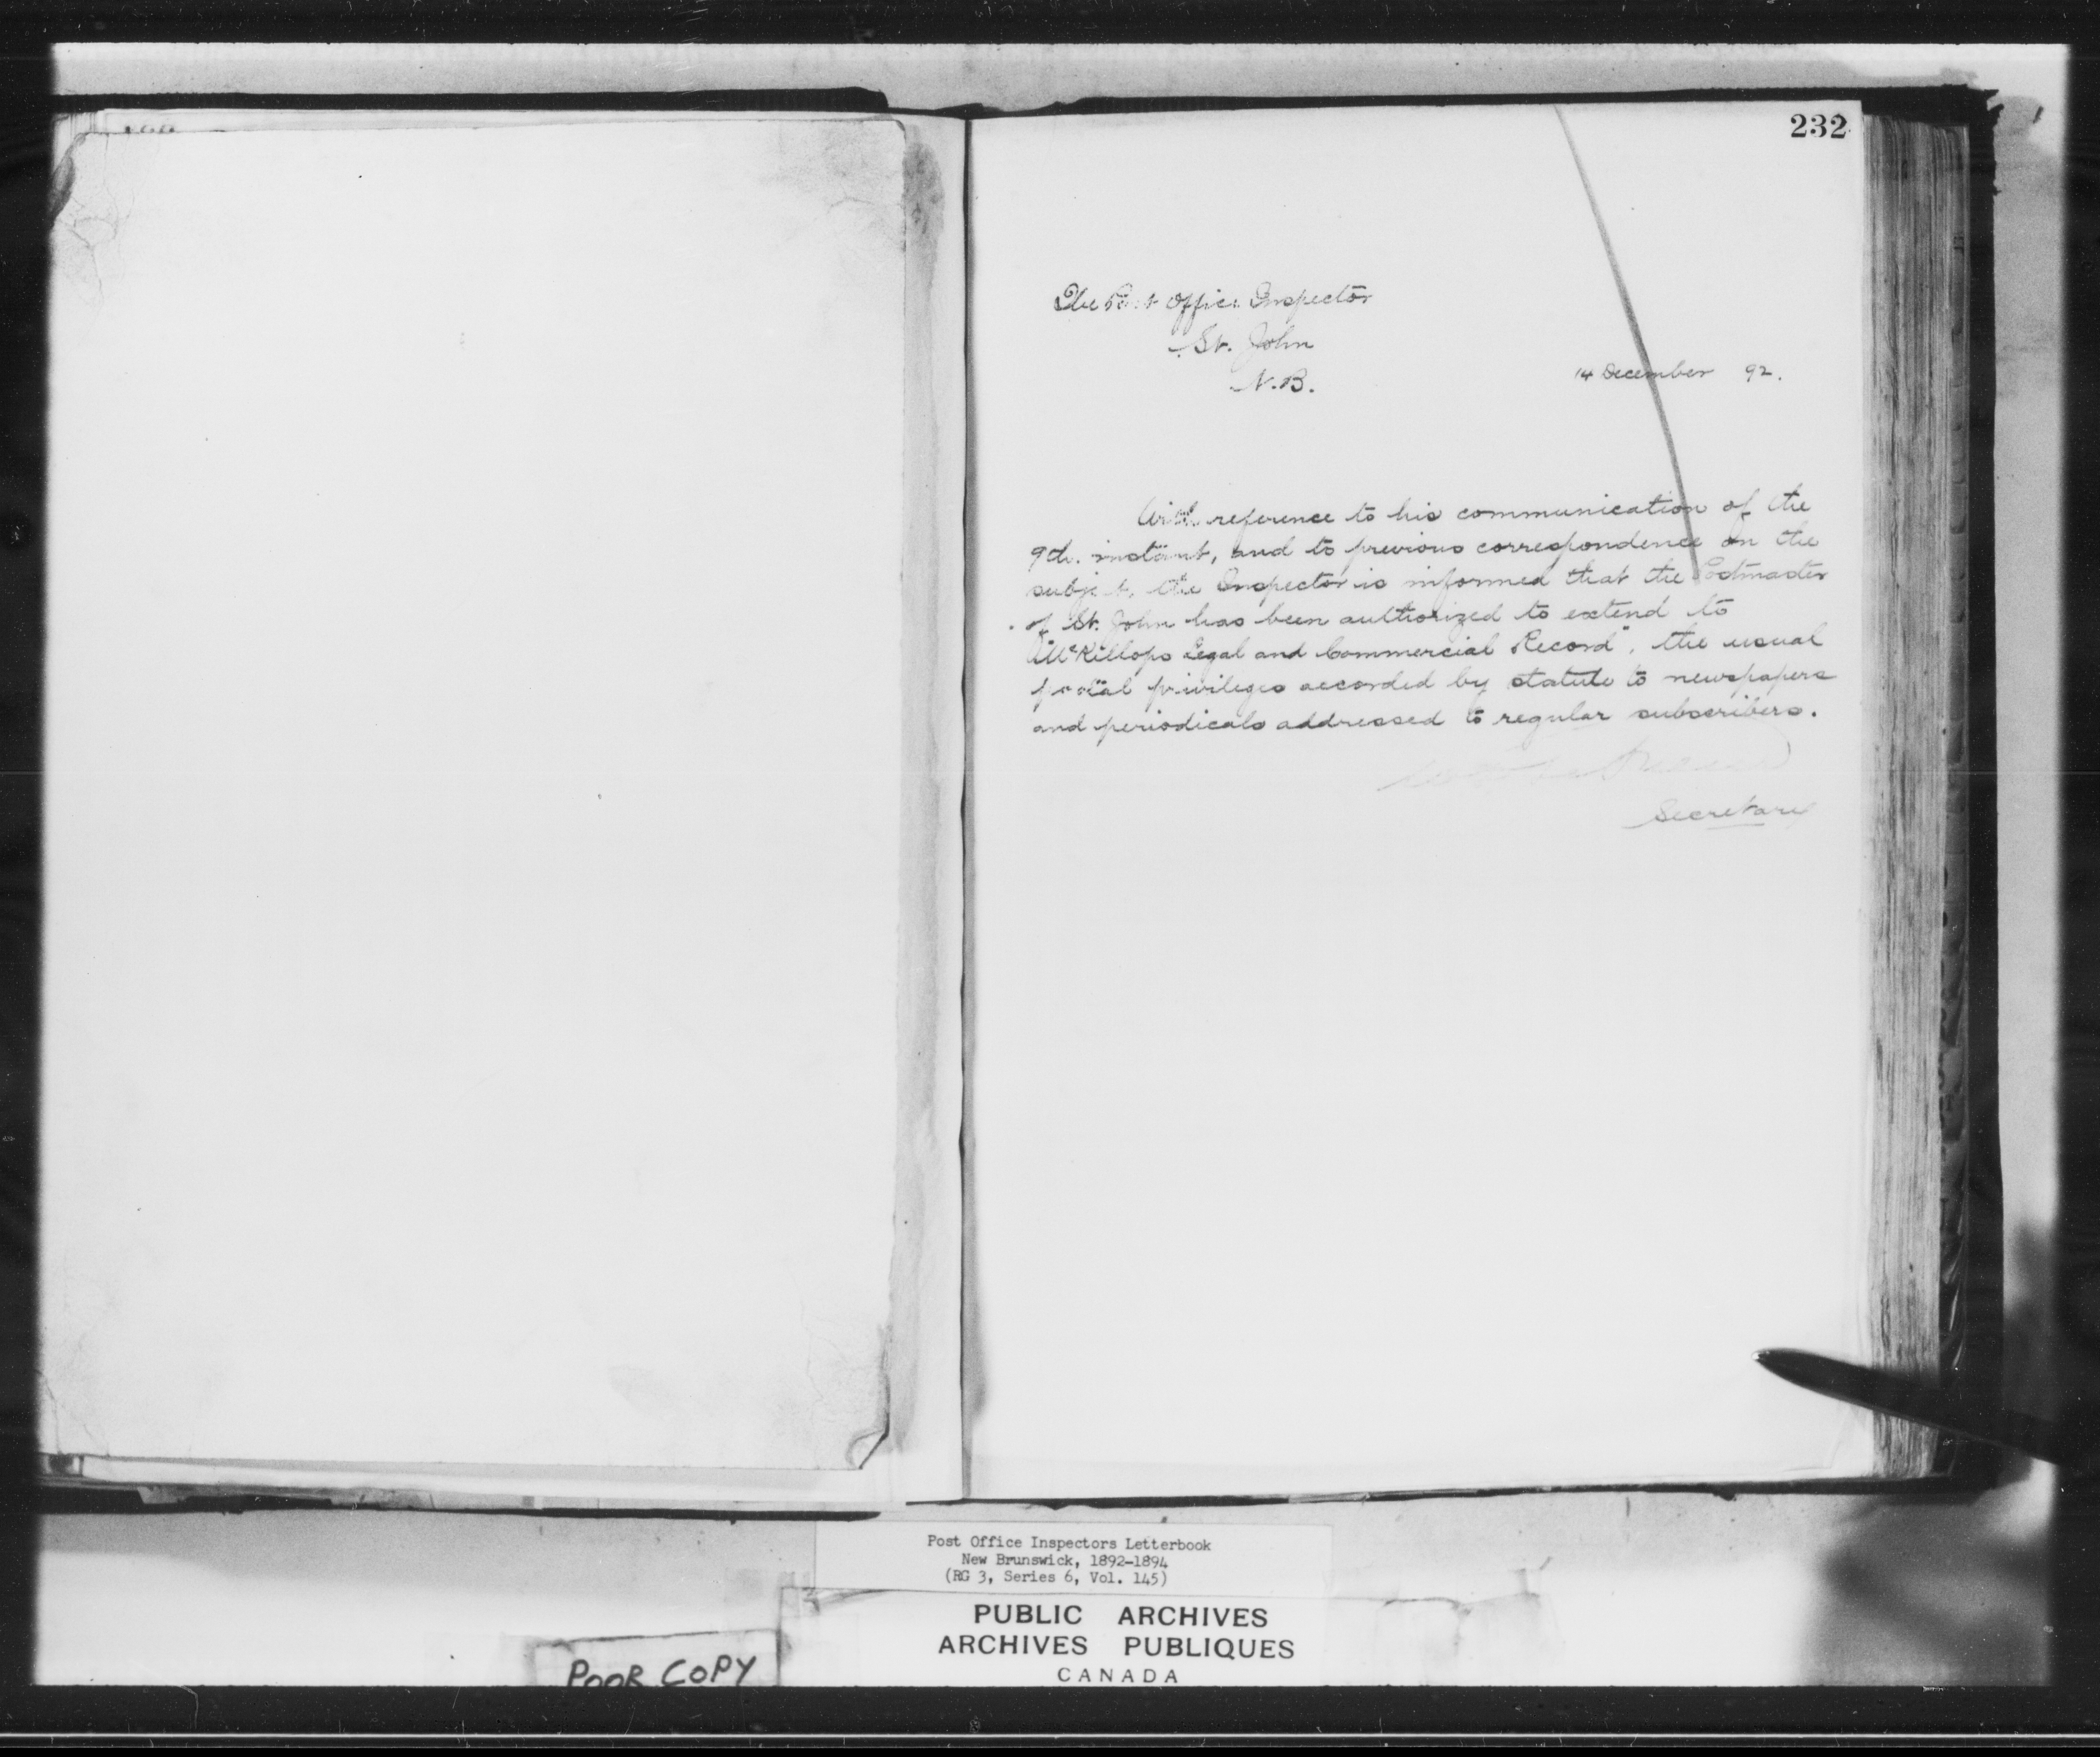 232
The Post Office Inspector
St. John
N.B.
14 December 92.
With reference to his communication of the
9th. instant, and to previous correspondence on the
subject, the Inspector is informed that the Postmaster
of St. John has been authorized to extend to
"McKillops Legal and Commercial Record", the usual
postal privileges accorded by statute to newspapers
and periodicals addressed to regular subscribers.
Secretary
Post Office Inspectors Letterbook
New Brunswick, 1892-1894
(RG 3, Series 6, Vol. 145)
PUBLIC ARCHIVES
ARCHIVES PUBLIQUES
CANADA
POOR COPY